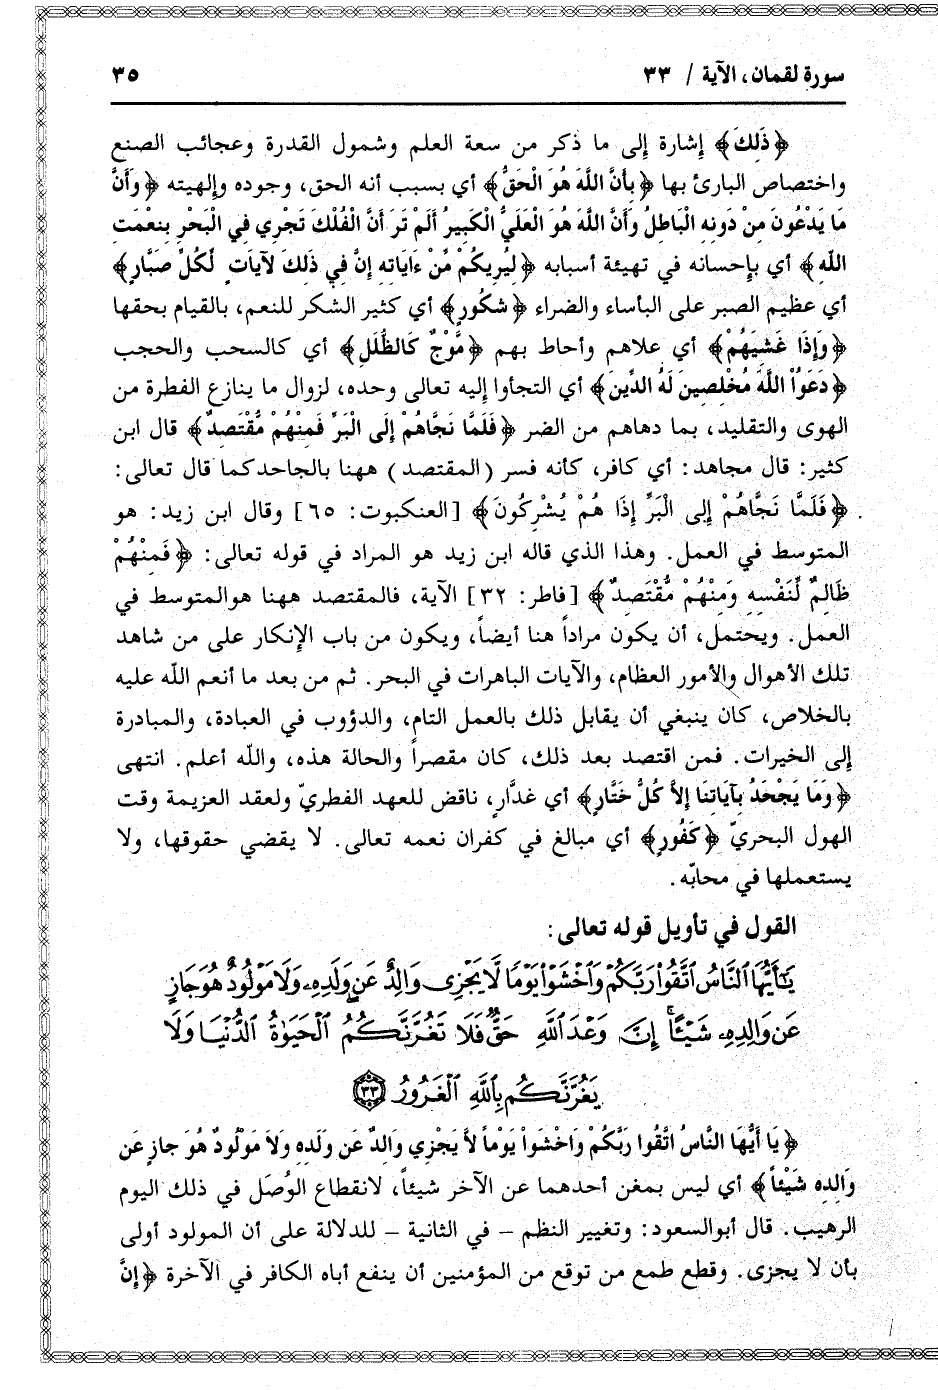 سورة لقمان، الآية / ٣٣
٣٥
﴿ذَلِكَ﴾ إشارة إلى ما ذكر من سعة العلم وشمول القدرة وعجائب الصنع
واختصاص البارئ بها ﴿بِأَنَّ اللَّهَ هُوَ الْحَقُّ﴾ أي بسبب أنه الحق، وجوده وإلهيته ﴿وَأَنَّ
مَا يَدْعُونَ مِنْ دُونِهِ الْبَاطِلُ وَأَنَّ اللَّهَ هُوَ الْعَلِيُّ الْكَبِيرُ أَلَمْ تَرَ أَنَّ الْفُلْكَ تَجْرِي فِي الْبَحْرِ بِنِعْمَتِ
اللَّهِ﴾ أي بإحسانه في تهيئة أسبابه ﴿لِيُرِيَكُم مِّنْ ءَايَاتِهِ إِنَّ فِي ذَلِكَ لَآيَاتٍ لِّكُلِّ صَبَّارٍ﴾
أي عظيم الصبر على البأساء والضراء ﴿شَكُورٍ﴾ أي كثير الشكر للنعم، بالقيام بحقها
﴿وَإِذَا غَشِيَهُمْ﴾ أي علاهم وأحاط بهم ﴿مَّوْجٌ كَالظُّلَلِ﴾ أي كالسحب والحجب
﴿دَعَوُاْ اللَّهَ مُخْلِصِينَ لَهُ الدِّينَ﴾ أي التجأوا إليه تعالى وحده، لزوال ما ينازع الفطرة من
الهوى والتقليد، بما دهاهم من الضر ﴿فَلَمَّا نَجَّاهُمْ إِلَى الْبَرِّ فَمِنْهُمْ مُّقْتَصِدٌ﴾ قال ابن
كثير: قال مجاهد: أي كافر، كأنه فسر (المقتصد) ههنا بالجاحدكما قال تعالى:
﴿فَلَمَّا نَجَّاهُمْ إِلَى الْبَرِّ إِذَا هُمْ يُشْرِكُونَ﴾ [العنكبوت: ٦٥] وقال ابن زيد: هو
المتوسط في العمل. وهذا الذي قاله ابن زيد هو المراد في قوله تعالى: ﴿فَمِنْهُمْ
ظَالِمٌ لِّنَفْسِهِ وَمِنْهُمْ مُّقْتَصِدٌ﴾ [فاطر: ٣٢] الآية، فالمقتصد ههنا هوالمتوسط في
العمل. ويحتمل، أن يكون مراداً هنا أيضاً، ويكون من باب الإنكار على من شاهد
تلك الأهوال والأمور العظام، والآيات الباهرات في البحر. ثم من بعد ما أنعم اللّه عليه
بالخلاص، كان ينبغي أن يقابل ذلك بالعمل التام، والدؤوب في العبادة، والمبادرة
إلى الخيرات. فمن اقتصد بعد ذلك، كان مقصراً والحالة هذه، واللّه أعلم. انتهى
﴿وَمَا يَجْحَدُ بِآيَاتِنَا إِلاَّ كُلُّ خَتَّارٍ﴾ أي غدَّارٍ، ناقض للعهد الفطريّ ولعقد العزيمة وقت
الهول البحريّ ﴿كَفُورٍ﴾ أي مبالغ في كفران نعمه تعالى. لا يقضي حقوقها، ولا
يستعملها في محابّه.
القول في تأويل قوله تعالى:
يَٰٓأَيُّهَا ٱلنَّاسُ ٱتَّقُوا۟ رَبَّكُمْ وَٱخْشَوْا۟ يَوْمًا لَّا يَجْزِى وَالِدٌ عَن وَلَدِهِۦ وَلَا مَوْلُودٌ هُوَ جَازٍ
عَن وَالِدِهِۦ شَيْـًٔا ۚ إِنَّ وَعْدَ ٱللَّهِ حَقٌّ ۖ فَلَا تَغُرَّنَّكُمُ ٱلْحَيَوٰةُ ٱلدُّنْيَا وَلَا
يَغُرَّنَّكُم بِٱللَّهِ ٱلْغَرُورُ ٣٣
﴿يَا أَيُّهَا النَّاسُ اتَّقُوا رَبَّكُمْ وَاخْشَوْاْ يَوْماً لاَّ يَجْزِي وَالِدٌ عَن وَلَدِهِ وَلاَ مَوْلُودٌ هُوَ جَازٍ عَن
وَالِدِهِ شَيْئاً﴾ أي ليس بمغن أحدهما عن الآخر شيئاً، لانقطاع الوُصَل في ذلك اليوم
الرهيب. قال أبوالسعود: وتغيير النظم – في الثانية – للدلالة على أن المولود أولى
بأن لا يجزى. وقطع طمع من توقع من المؤمنين أن ينفع أباه الكافر في الآخرة ﴿إِنَّ